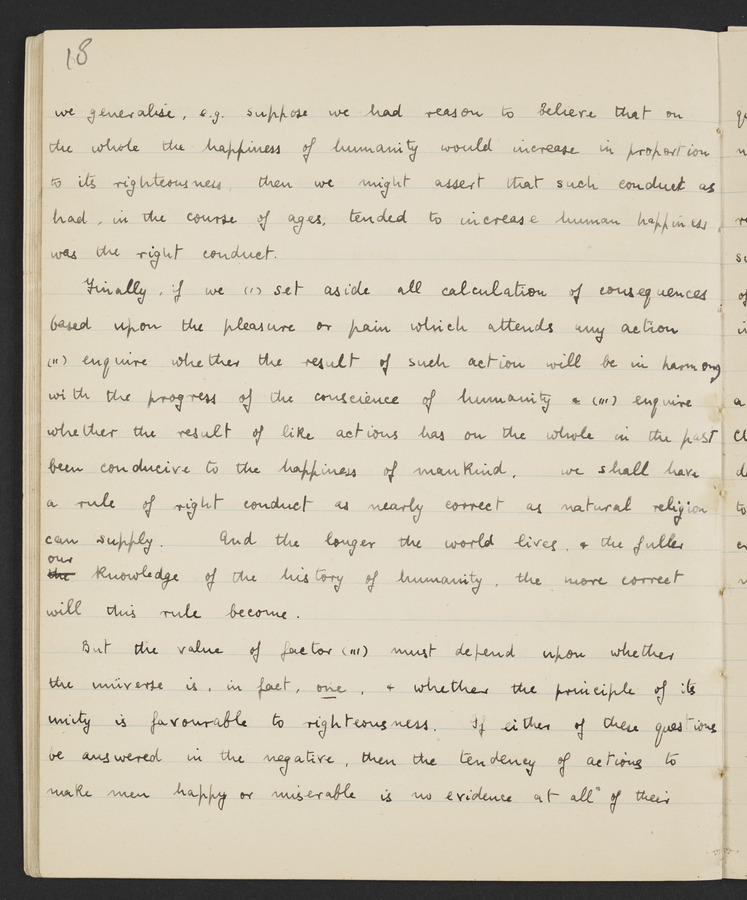 18
we generalise, e.g. suppose we had reason to believe that on
the whole the happiness of humanity would increase in proportion
to its righteousness, then we might assert that such conduct as
had, in the course of ages, tended to increase human happiness,
was the right conduct.
Finally, if we (i) set aside all calculation of consequences
based upon the pleasure or pain which attends any action
(ii) enquire whether the result of such action will be in harmony
with the progress of the conscience of humanity & (iii) enquire
whether the result of like actions has on the whole in the past
been conducive to the happiness of mankind, we shall have
a rule of right conduct as nearly correct as natural religion
can supply. And the longer the world lives, & the fuller
our
the knowledge of the history of humanity, the more correct
will this rule become.
But the value of factor (iii) must depend upon whether
the universe is, in fact, one, & whether the principle of its
unity is favourable to righteousness. If either of these questions
be answered in the negative, then the tendency of actions to
make men happy or miserable is no evidence at all of their